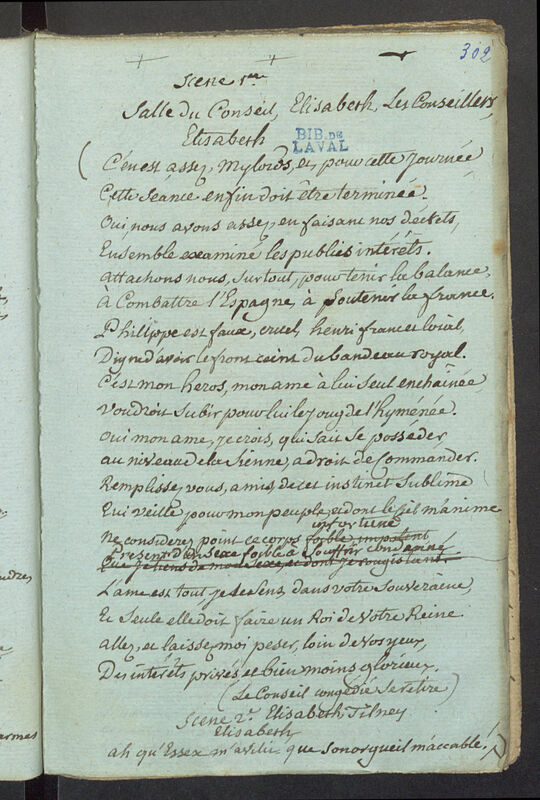 302
Scene 1re
Salle du Conseil, Elisabeth, Les Conseillers,
Elisabeth
BIB. DE
LAVAL
C'en est assez, Mylords, et pour cette journée
Cette séance enfin doit être terminée.
Oui, nous avons assez, en faisant nos décrets,
Ensemble examiné les publics intérêts.
attachons nous, surtout, pour tenir la balance,
à Combattre l'Espagne, à Soutenir la france.
Philippe est faux, cruel, henri franc et loial,
Digne d'avoir le front ceint du bandeau royal.
C'est mon heros, mon ame à lui seul enchaînée,
voudroit Subir pour lui le joug de l'hyménée.
Oui mon ame, je crois, qui sait se posséder
au niveau de la Sienne, a droit de Commander.
Remplissez vous, amis, de cet instinct Sublime
Qui veille pour mon peuple, et dont le Ciel m'anime
infortuné
Ne considerez point ce corps foible, impotent
Present d'un Sexe foible à Souffrir condamné
Que je tiens de mon Sexe, et dont je rougis tant.
L'ame est tout, je le Sens, dans votre Souveraine,
Et Seule elle doit faire un Roi de Votre Reine.
allez, et laissez moi peser, loin de Vos yeux,
Des intérêts privés, et bien moins glorieux.
(Le Conseil congédié Se retire)
Scene 2e. Elisabeth, Tilney
Elisabeth
ah qu'Essex m'avilit, que Son orgueil m'accable!
armes